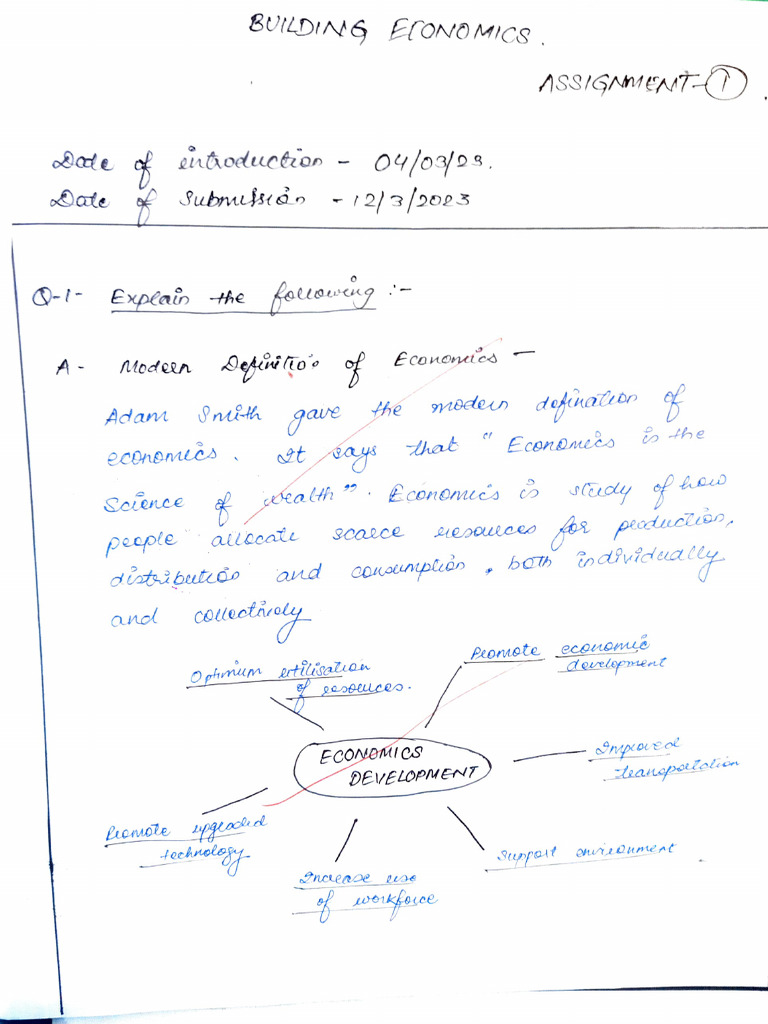 BUILDING ECONOMICS.
ASSIGNMENT-1
Date of introduction - 04/03/23.
Date of submission - 12/3/2023
Q-1- Explain the following :-
A- Modern Definitio's of Economics -
Adam Smith gave the modern defination of
economics. It says that "Economics is the
Science of wealth". Economics is study of how
people allocate scarce resources for production,
distribution and consumption, both individually
and collectively
Optimum utilisation
of resources.
Promote economic
development
ECONOMICS
DEVELOPMENT
Improved
transportation
Promote upgraded
technology
Increase use
of workforce
Support environment